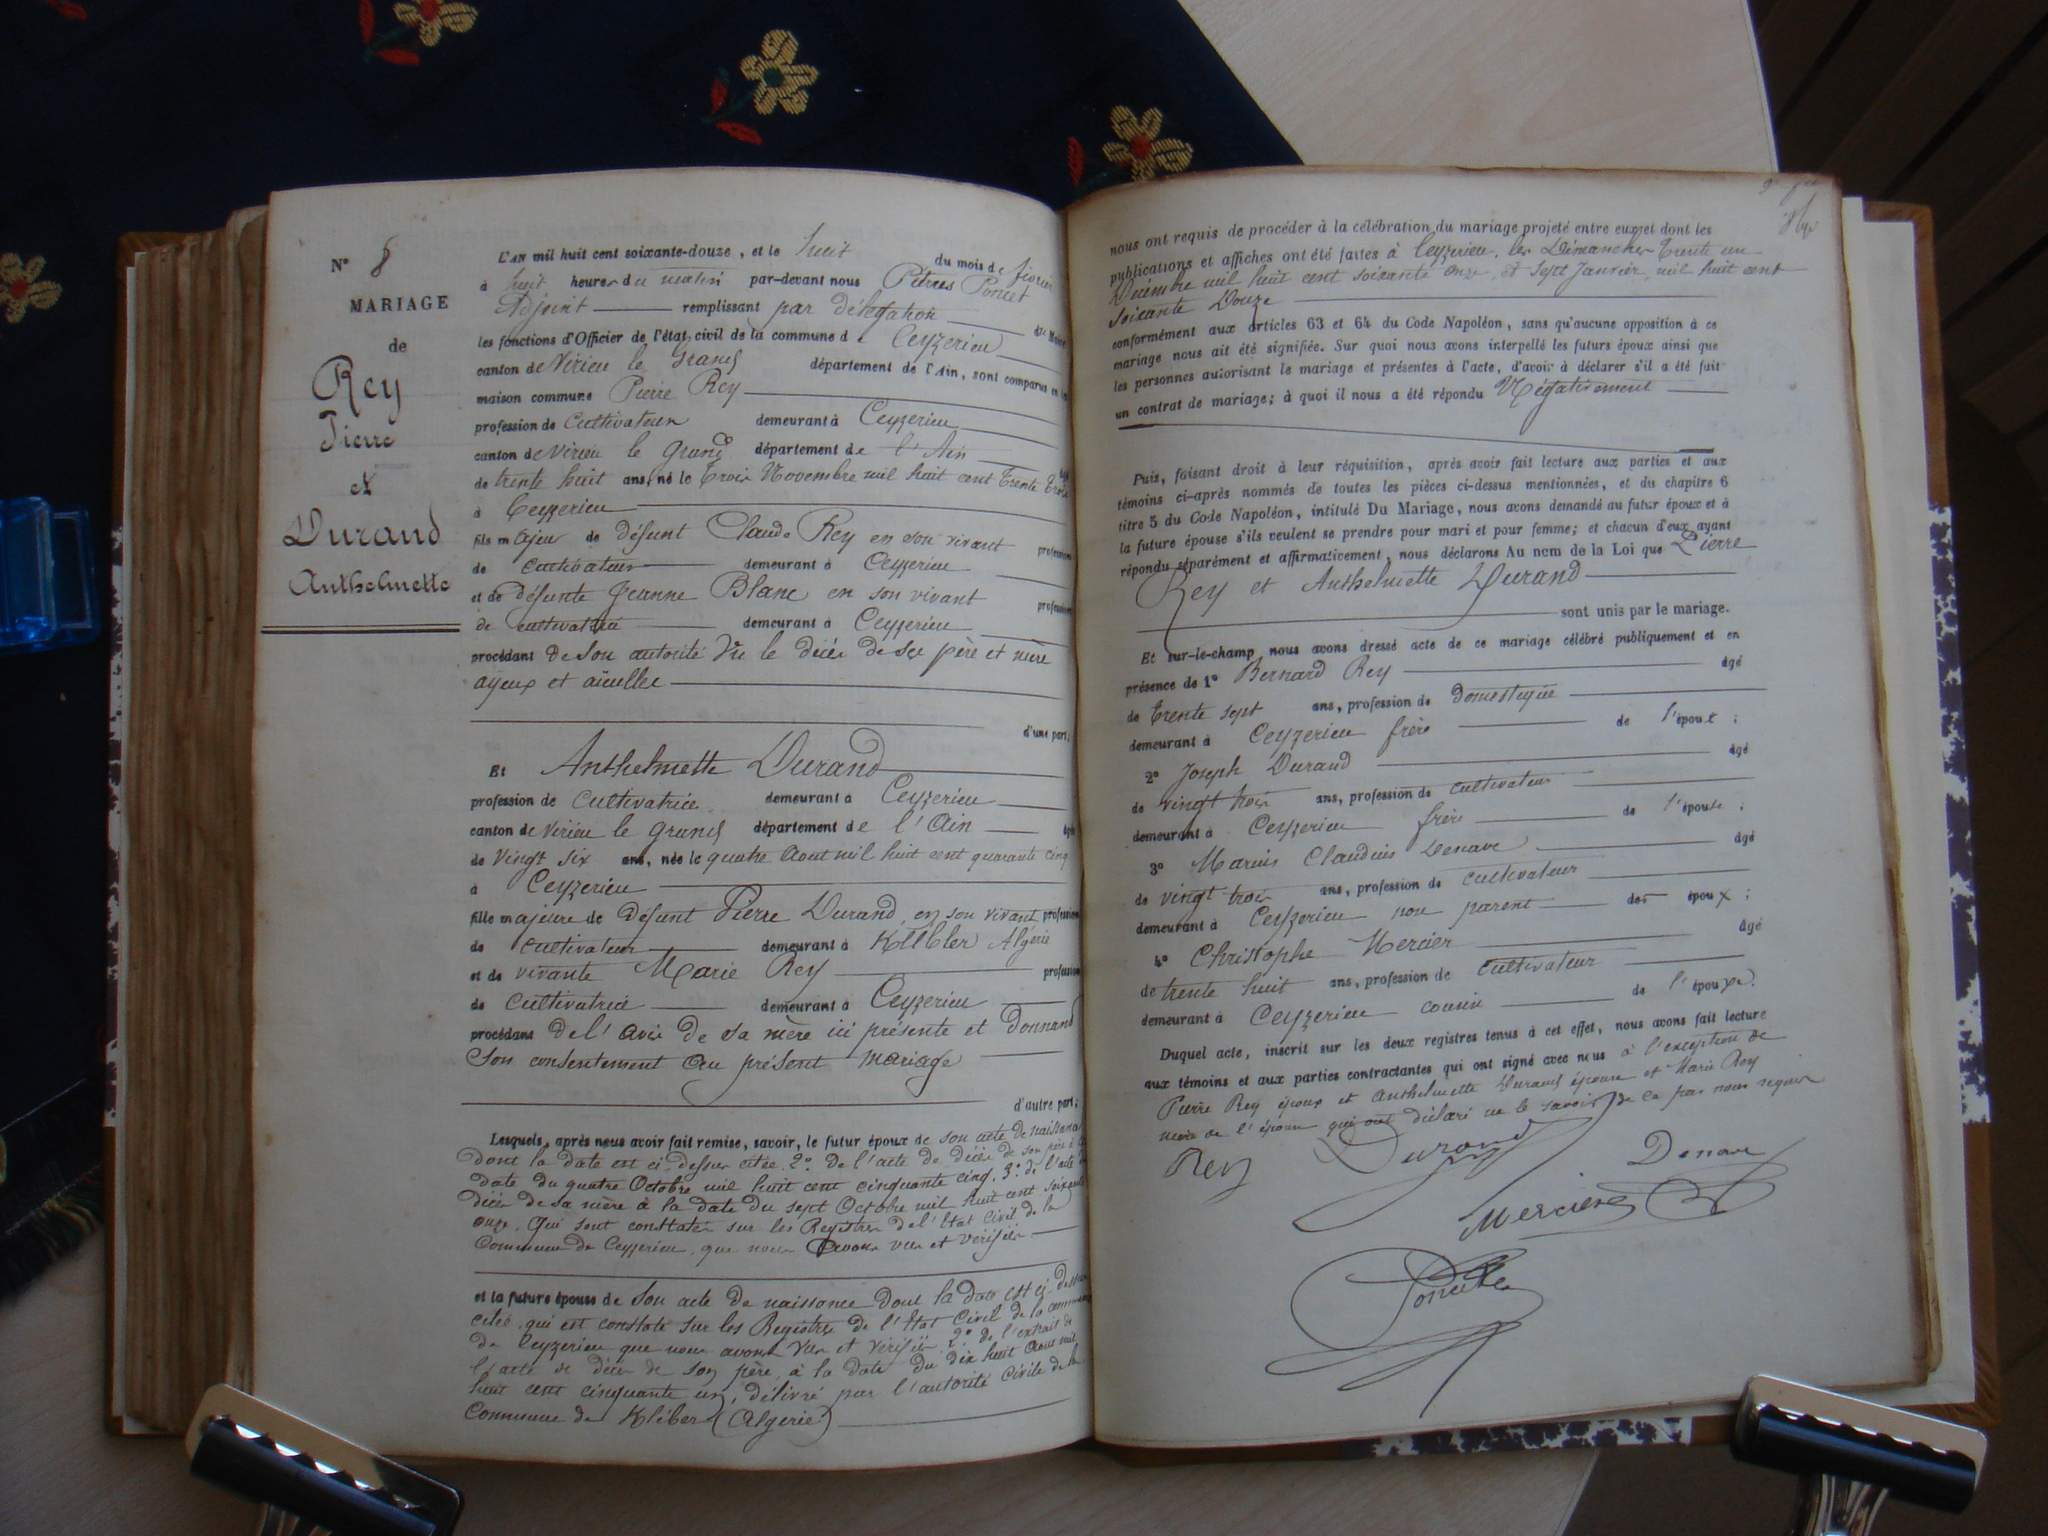 N° 8
MARIAGE
de
Rey
Pierre
et
Durand
Anthelmette
L'AN mil huit cent soixante-douze, et le huit du mois de février
à huit heures du matin par-devant nous Poncet
Adjoint remplissant par délégation du Maire
les fonctions d'Officier de l'état civil de la commune de Ceyzerieu
canton de Virieu le Grand département de l'Ain, sont comparus en la
maison commune Pierre Rey
profession de cultivateur demeurant à Ceyzerieu
canton de Virieu le grand département de l'Ain âgé
de trente huit ans, né le trois Novembre mil huit cent trente trois
à Ceyzerieu
fils majeur de défunt Claude Rey en son vivant profession
de cultivateur demeurant à Ceyzerieu
et de défunte Jeanne Blanc en son vivant profession
de cultivatrice demeurant à Ceyzerieu
procédant de son autorité vu le décès de ses père et mère
ayeux et aieulles
d'une part;
Et Anthelmette Durand
profession de cultivatrice demeurant à Ceyzerieu
canton de Virieu le grand département de l'Ain âgée
de vingt six ans, née le quatre Aout mil huit cent quarante cinq
à Ceyzerieu
fille majeure de défunt Pierre Durand, en son vivant profession
de cultivateur demeurant à Klébler Algérie
et de vivante Marie Rey profession
de cultivatrice demeurant à Ceyzerieu
procédant de l'avis de sa mère ici présente et donnand
son consentement au présent mariage
d'autre part;
Lesquels, après nous avoir fait remise, savoir, le futur époux de son acte de naissance
dont la date est ci-dessus citée. 2° de l'acte de décès de son père à la
date du quatre Octobre mil huit cent cinquante cinq, 3° de l'acte de
décès de sa mère à la date du sept Octobre mil huit cent soixante
onze, qui sont constatés sur les Registres de l'Etat Civil de la
Commune de Ceyzerieu, que nous avons vus et vérifiés
et la future épouse de son acte de naissance dont la date est ci-dessus
citée, qui est constaté sur les Registres de l'Etat Civil de la commune
de Ceyzerieu que nous avons vus et vérifiés 2° de l'extrait de
l'acte de décès de son père, à la date du dix huit Aout mil
huit cent cinquante un, délivré par l'autorité civile de la
Commune de Kléber (Algérie)
nous ont requis de procéder à la célébration du mariage projeté entre eux et dont les
publications et affiches ont été faites à Ceyzerieu, les Dimanches trente un
Décembre mil huit cent soixante onze, et sept Janvier, mil huit cent
soixante Douze
conformément aux articles 63 et 64 du Code Napoléon, sans qu'aucune opposition à ce
mariage nous ait été signifiée. Sur quoi nous avons interpellé les futurs époux ainsi que
les personnes autorisant le mariage et présentes à l'acte, d'avoir à déclarer s'il a été fait
un contrat de mariage; à quoi il nous a été répondu Négativement
Puis, faisant droit à leur réquisition, après avoir fait lecture aux parties et aux
témoins ci-après nommés de toutes les pièces ci-dessus mentionnées, et du chapitre 6
titre 5 du Code Napoléon, intitulé Du Mariage, nous avons demandé au futur époux et à
la future épouse s'ils veulent se prendre pour mari et pour femme; et chacun d'eux ayant
répondu séparément et affirmativement, nous déclarons Au nom de la Loi que Pierre
Rey et Anthelmette Durand
sont unis par le mariage.
Et sur-le-champ nous avons dressé acte de ce mariage célébré publiquement et en
présence de 1° Bernard Rey âgé
de trente sept ans, profession de domestique
demeurant à Ceyzerieu frère de l'époux;
2° Joseph Durand âgé
de vingt trois ans, profession de cultivateur
demeurant à Ceyzerieu frère de l'épouse;
3° Marius Claudius Denave âgé
de vingt trois ans, profession de cultivateur
demeurant à Ceyzerieu non parent des époux;
4° Christophe Mercier âgé
de trente huit ans, profession de cultivateur
demeurant à Ceyzerieu cousin de l'époux.
Duquel acte, inscrit sur les deux registres tenus à cet effet, nous avons fait lecture
aux témoins et aux parties contractantes qui ont signé avec nous à l'exception de
Pierre Rey époux et Anthelmette Durand épouse et Marie Rey
mère de l'épouse qui ont déclaré ne le savoir de ce par nous requis
Rey Durand Denave
Mercier
Poncet